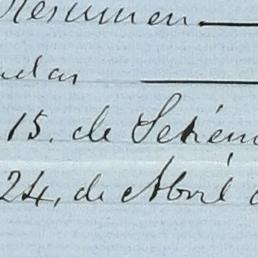 Resumen
ndar
15. de Setiem
24, de Abril